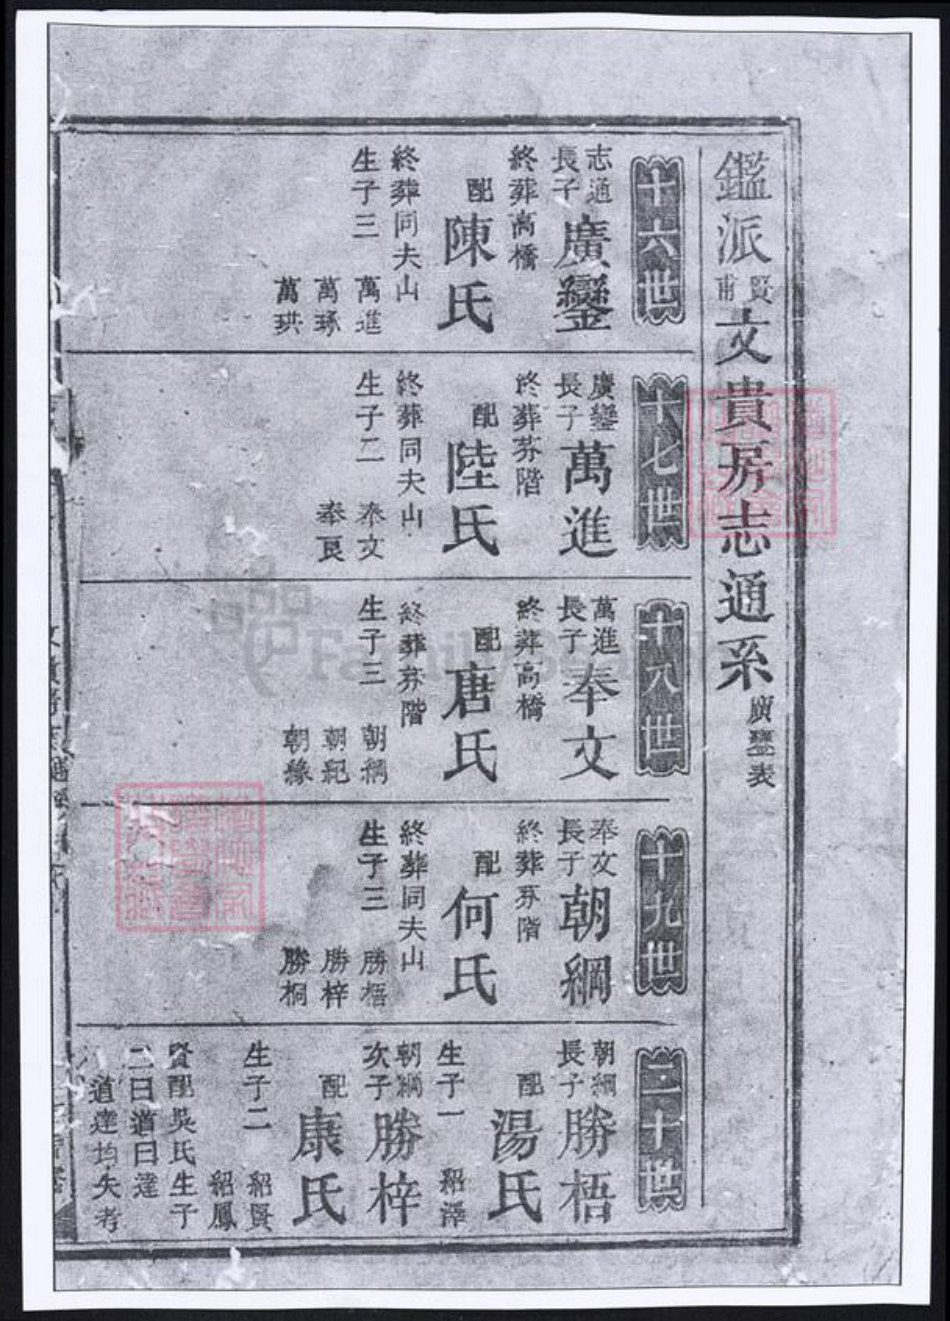 鑑派賢甫文貴房志通系廣鑾表
十六世
志通
長子
廣鑾
終葬高橋
配陳氏
終葬同夫山
生子三
萬進
萬琢
萬珙
十七世
廣鑾
長子
萬進
終葬芬階
配陸氏
終葬同夫山
生子二
奉文
奉良
十八世
萬進
長子
奉文
終葬高橋
配唐氏
終葬芬階
生子三
朝綱
朝紀
朝緣
十九世
奉文
長子
朝綱
終葬芬階
配何氏
終葬同夫山
生子三
勝梧
勝梓
勝桐
二十世
朝綱
長子
勝梧
配湯氏
生子一
紹澤
朝綱
次子
勝梓
配康氏
生子二
紹賢
紹鳳
賢配吳氏生子
二曰道曰達
道達均失考